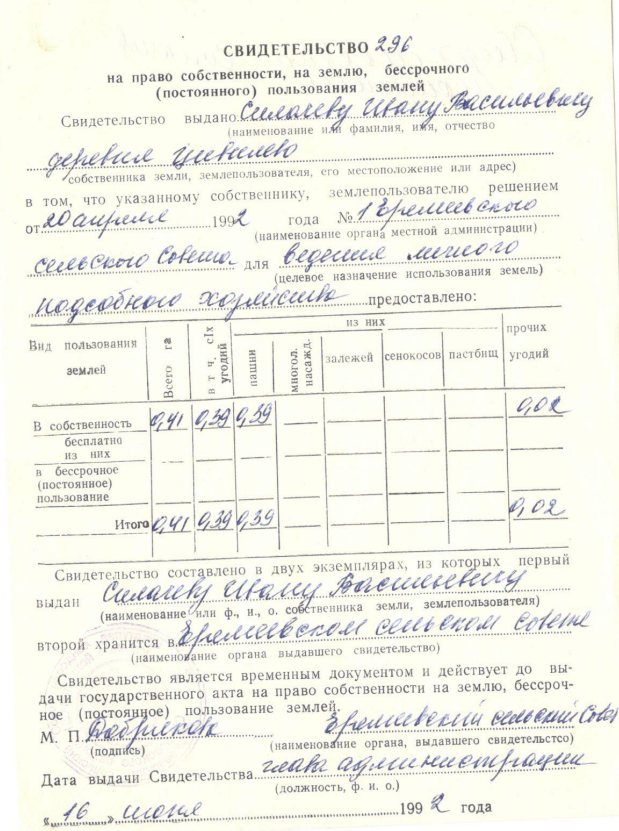 СВИДЕТЕЛЬСТВО 296
на право собственности, на землю, бессрочного
(постоянного) пользования землей
Свидетельство выдано Силаеву Ивану Васильевичу
(наименование или фамилия, имя, отчество
деревня Цивилево
(собственника земли, землепользователя, его местоположение или адрес)
в том, что указанному собственнику, землепользователю решением
от 20 апреля 1992 года № 1 Еремеевского
(наименование органа местной администрации)
сельского Совета для ведения личного
(целевое назначение использования земель)
подсобного хозяйства предоставлено:
Вид пользования землей Всего га в т. ч. с|х угодий из них прочих угодий
пашни многол. насажд. залежей сенокосов пастбищ
В собственность 0,41 0,39 0,39 — — — — 0,02
бесплатно из них — — — — — — — —
в бессрочное (постоянное) пользование — — — — — — — —
Итого 0,41 0,39 0,39 — — — — 0,02
Свидетельство составлено в двух экземплярах, из которых первый
выдан Силаеву Ивану Васильевичу
(наименование или ф., и., о. собственника земли, землепользователя)
второй хранится в Еремеевском сельском Совете
(наименование органа выдавшего свидетельство)
Свидетельство является временным документом и действует до вы-
дачи государственного акта на право собственности на землю, бессроч-
ное (постоянное) пользование землей.
М. П. Еремеевский сельский Совет
(подпись) (наименование органа, выдавшего свидетельстсо)
Дата выдачи Свидетельства глава администрации
(должность, ф. и о.)
„16„ июня 1992 года